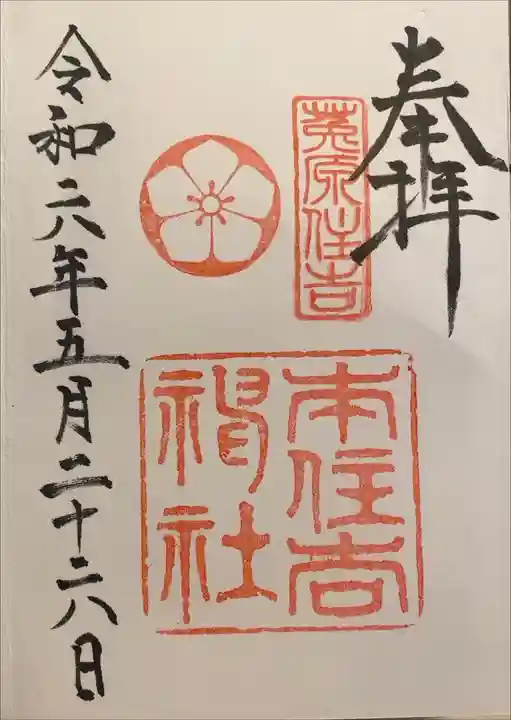 奉拝
莵原住吉
本住吉
神社
令和六年五月二十六日